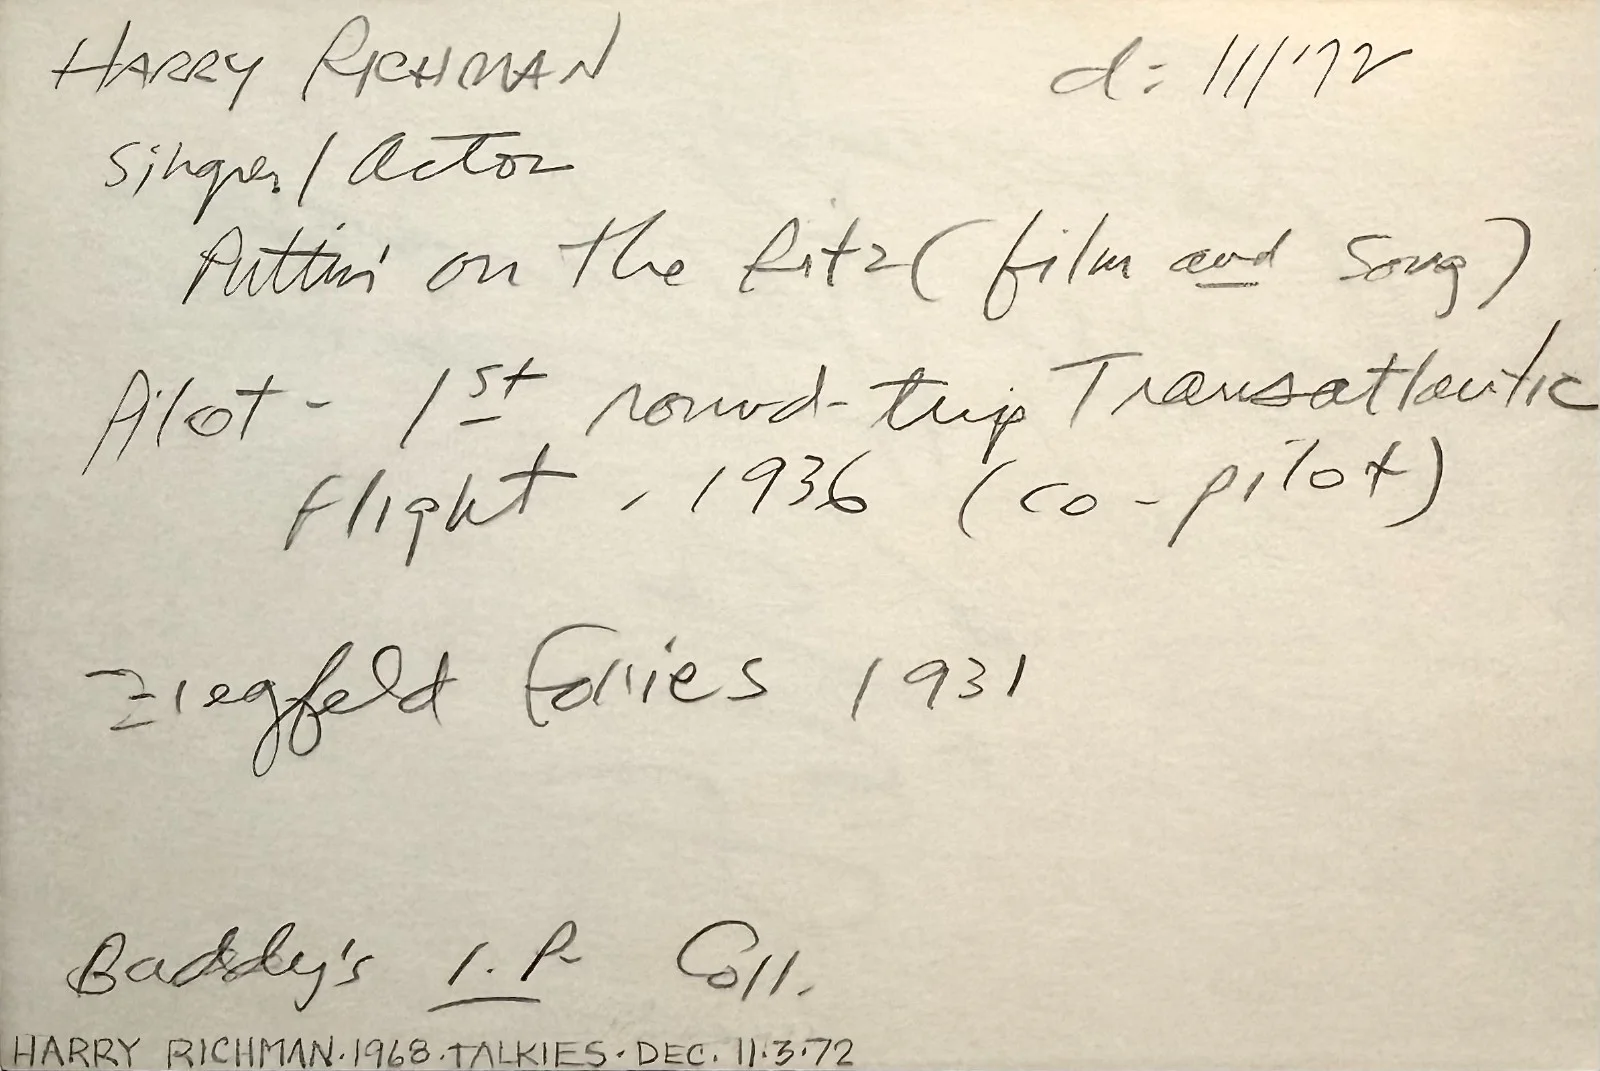 HARRY RICHMAN d: 11/'72
Singer/Actor
Puttin' on the Ritz (film and Song)
Pilot - 1st round-trip Transatlantic
flight, 1936 (co-pilot)
Ziegfeld Follies 1931
Baddy's I.P. Coll.
HARRY RICHMAN·1968·TALKIES·DEC. 11·3·72